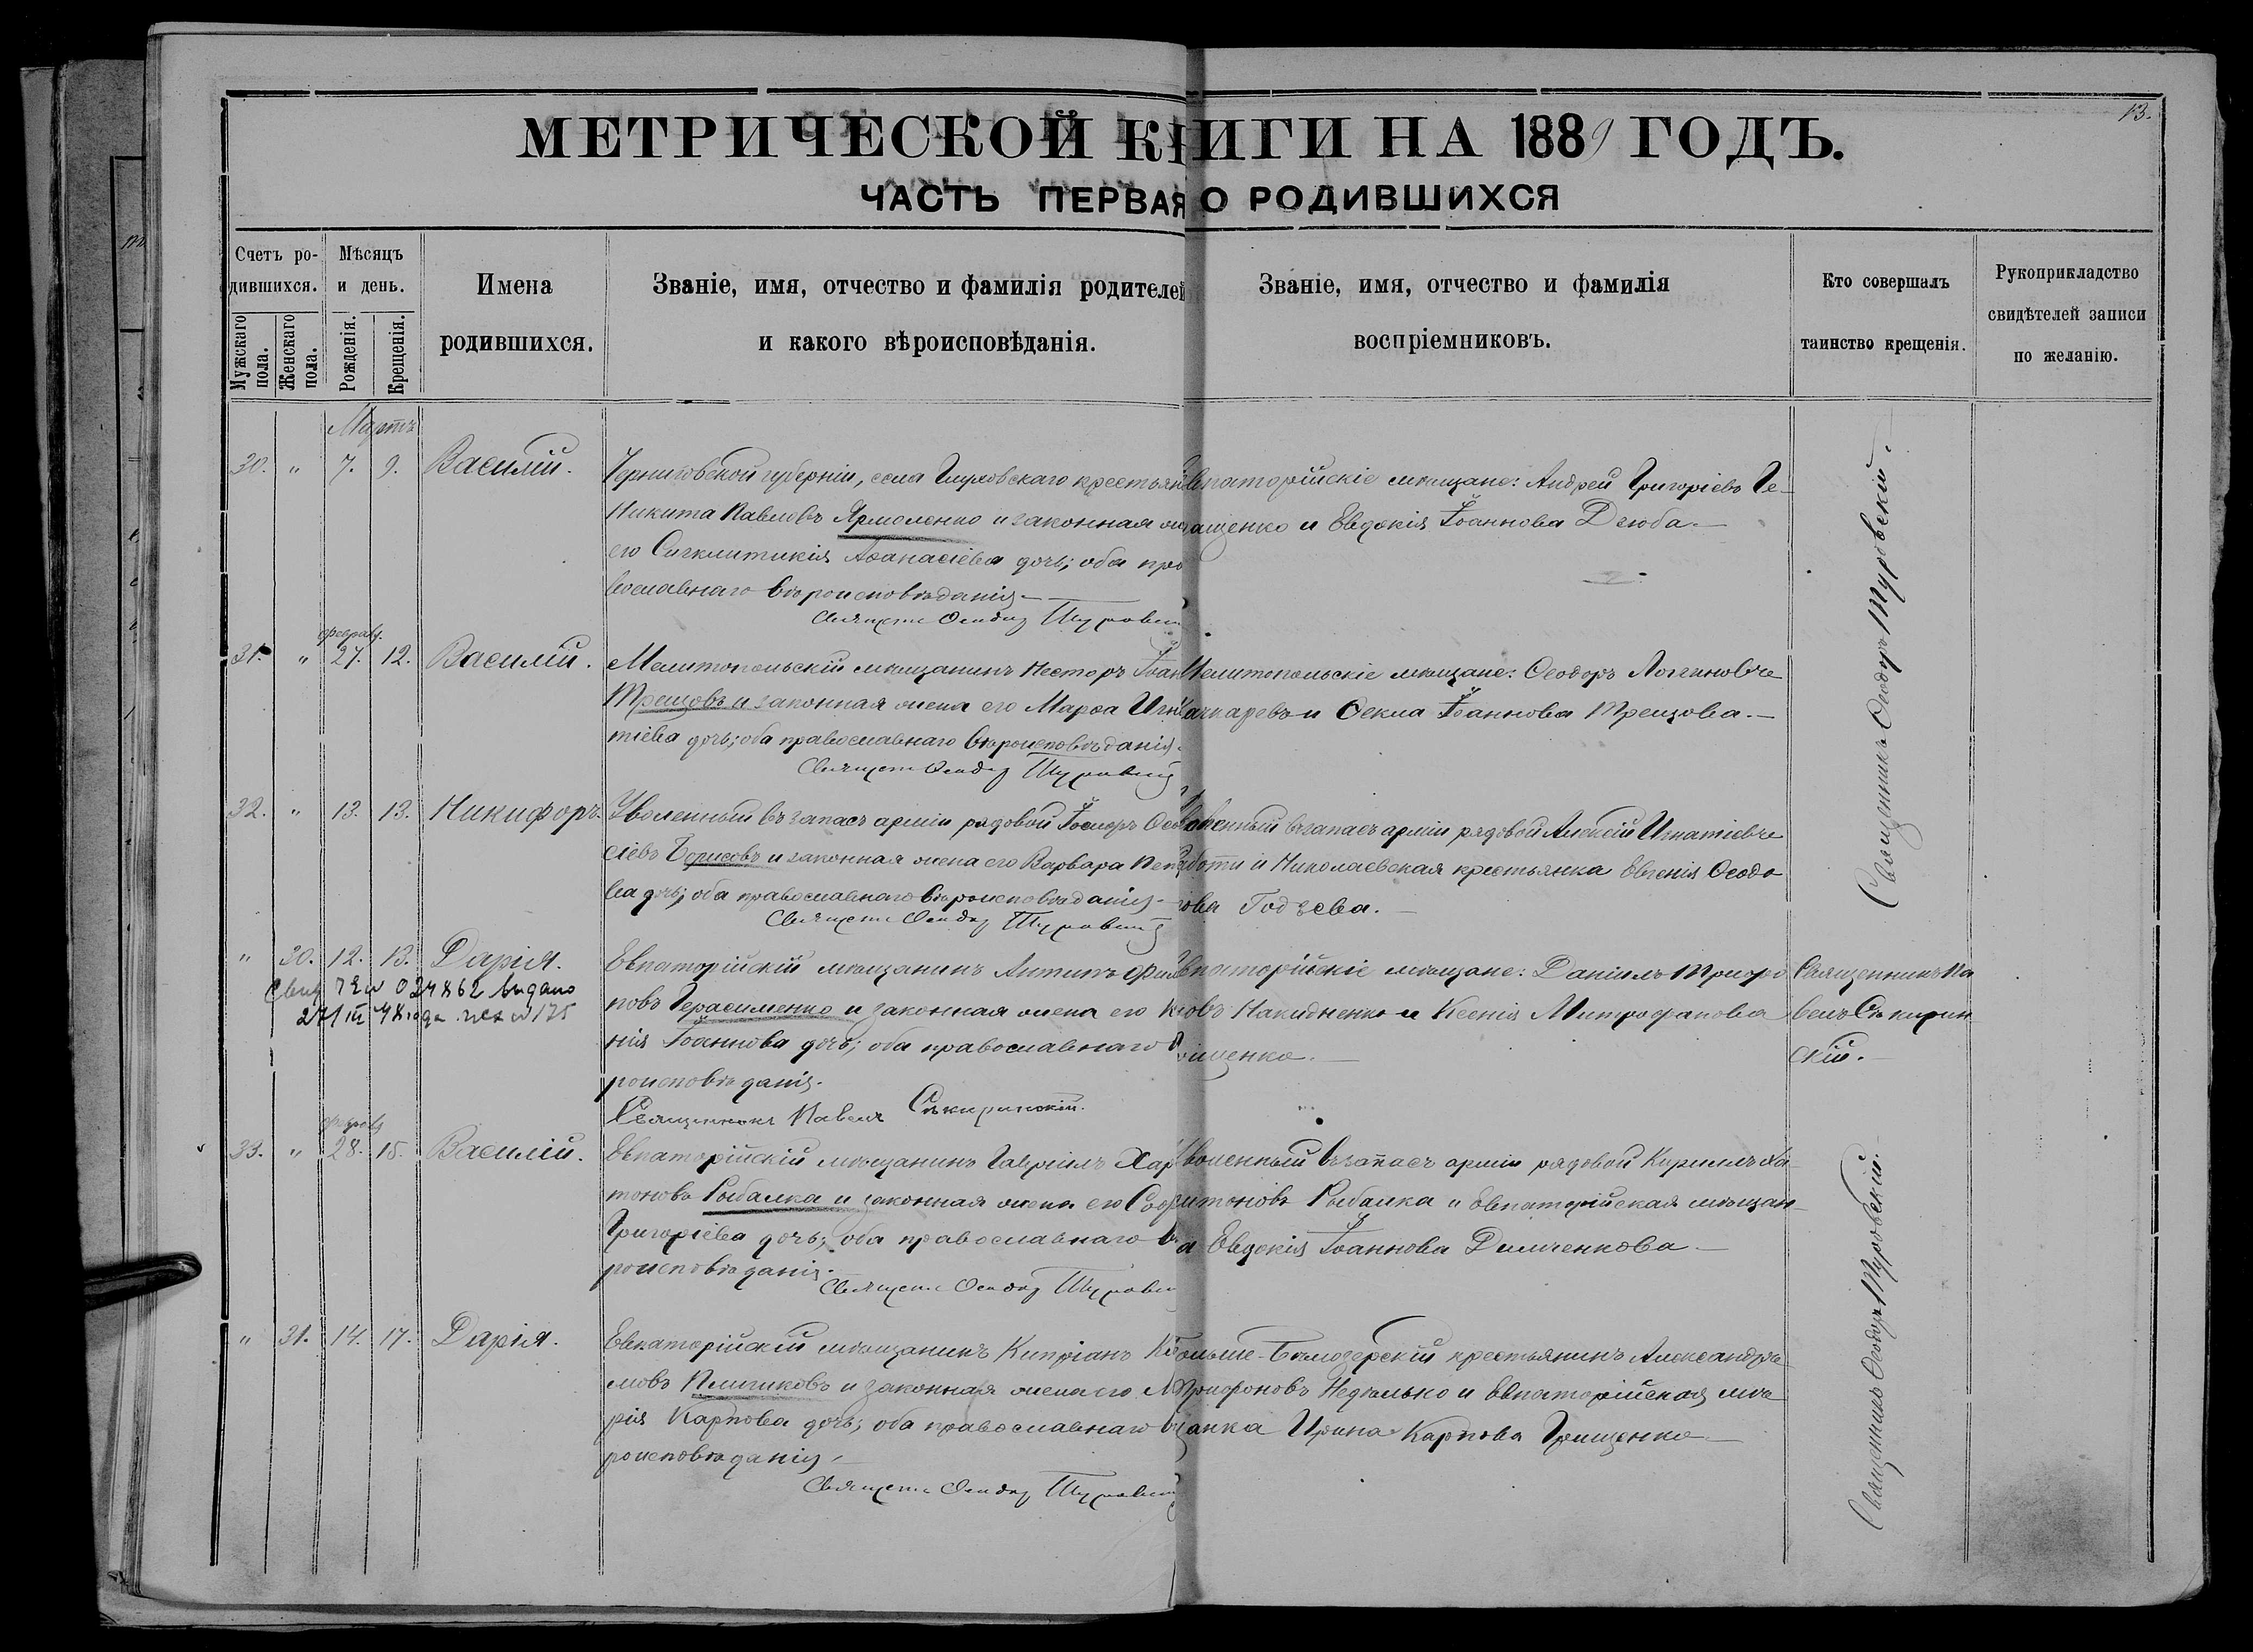 13.
МЕТРИЧЕСКОЙ КНИГИ НА 1889 ГОДЪ.
ЧАСТЬ ПЕРВАЯ О РОДИВШИХСЯ
Счетъ родившихся.
Мужскаго пола.
Женскаго пола.
Мѣсяцъ и день.
Рожденія.
Крещенія.
Имена
родившихся.
Званіе, имя, отчество и фамилія родителей
и какого вѣроисповѣданія.
Званіе, имя, отчество и фамилія
воспріемниковъ.
Кто совершалъ
таинство крещенія.
Рукоприкладство
свидѣтелей записи
по желанію.
Мартъ
30. " 7. 9. Василій.
Черниговской губерніи, села Глуховскаго крестьян
Никита Павловъ Ярмоленко и законная
его Сигклитикія Аѳанасіева дочь; оба пра
вославнаго вѣроисповѣданія.
Священ. Ѳеодоръ Туровскі
впаторійскіе мѣщане: Андрей Григоріевъ Ге-
ащенко и Евдокія Іоаннова Дзюба.
Священникъ Ѳеодоръ Туровскій.
31. " феврал. 27. 12. Василій.
Мелитопольскій мѣщанинъ Несторъ Іоан
Трещовъ и законная жена его Марѳа Игна
тіева дочь; оба православнаго вѣроисповѣданія.
Священ. Ѳеодоръ Туровскій
Мелитопольскіе мѣщане: Ѳеодоръ Логиновъ
ачкаревъ и Ѳекла Іоаннова Трещова.
32. " 13. 13. Никифоръ.
Уволенный въ запасъ арміи рядовой Іосифъ Ѳео
сіевъ Борисовъ и законная жена его Варвара
ва дочь; оба православнаго вѣроисповѣданія.
Священ. Ѳеодоръ Туровскій
воленный въ запасъ арміи рядовой Алексій Игнатіевъ
и Николаевская крестьянка Евгенія Ѳеодо
рова Годзева.
" 30. 12. 13. Дарія.
024862 выдано
175
Евпаторійскій мѣщанинъ Антипъ Фил
повъ Герасименко и законная жена его К
нія Іоаннова дочь; оба православнаго в
роисповѣданія.
Священникъ Павелъ Сѣкиринскій.
впаторійскіе мѣщане: Даніилъ
овъ Накидненко и Ксенія Митрофанова
ищенко.
Священникъ Па
велъ Сѣкирин
скій.
33. " феврал 28. 15. Василій.
Евпаторійскій мѣщанинъ Гавріилъ Хар
тоновъ Рыбалка и законная жена его Соф
Григоріева дочь; оба православнаго вѣ
роисповѣданія.
Священ. Ѳеодоръ Туровскі
воленный въ запасъ арміи рядовой Кириллъ Ха-
ритоновъ Рыбалка и Евпаторійская мѣщан-
а Евдокія Іоаннова Димченкова.
Священникъ Ѳеодоръ Туровскій.
" 31. 14. 17. Дарія.
Евпаторійскій мѣщанинъ Кипріанъ
мовъ Плигиковъ и законная жена его Ма
рія Карпова дочь; оба православнаго в
роисповѣданія.
Священ. Ѳеодоръ Туровскій
ольше-Бѣлозерскій крестьянинъ Александръ
Трифоновъ Недѣлько и Евпаторійская мѣ-
щанка Ирина Карпова Грищенко.